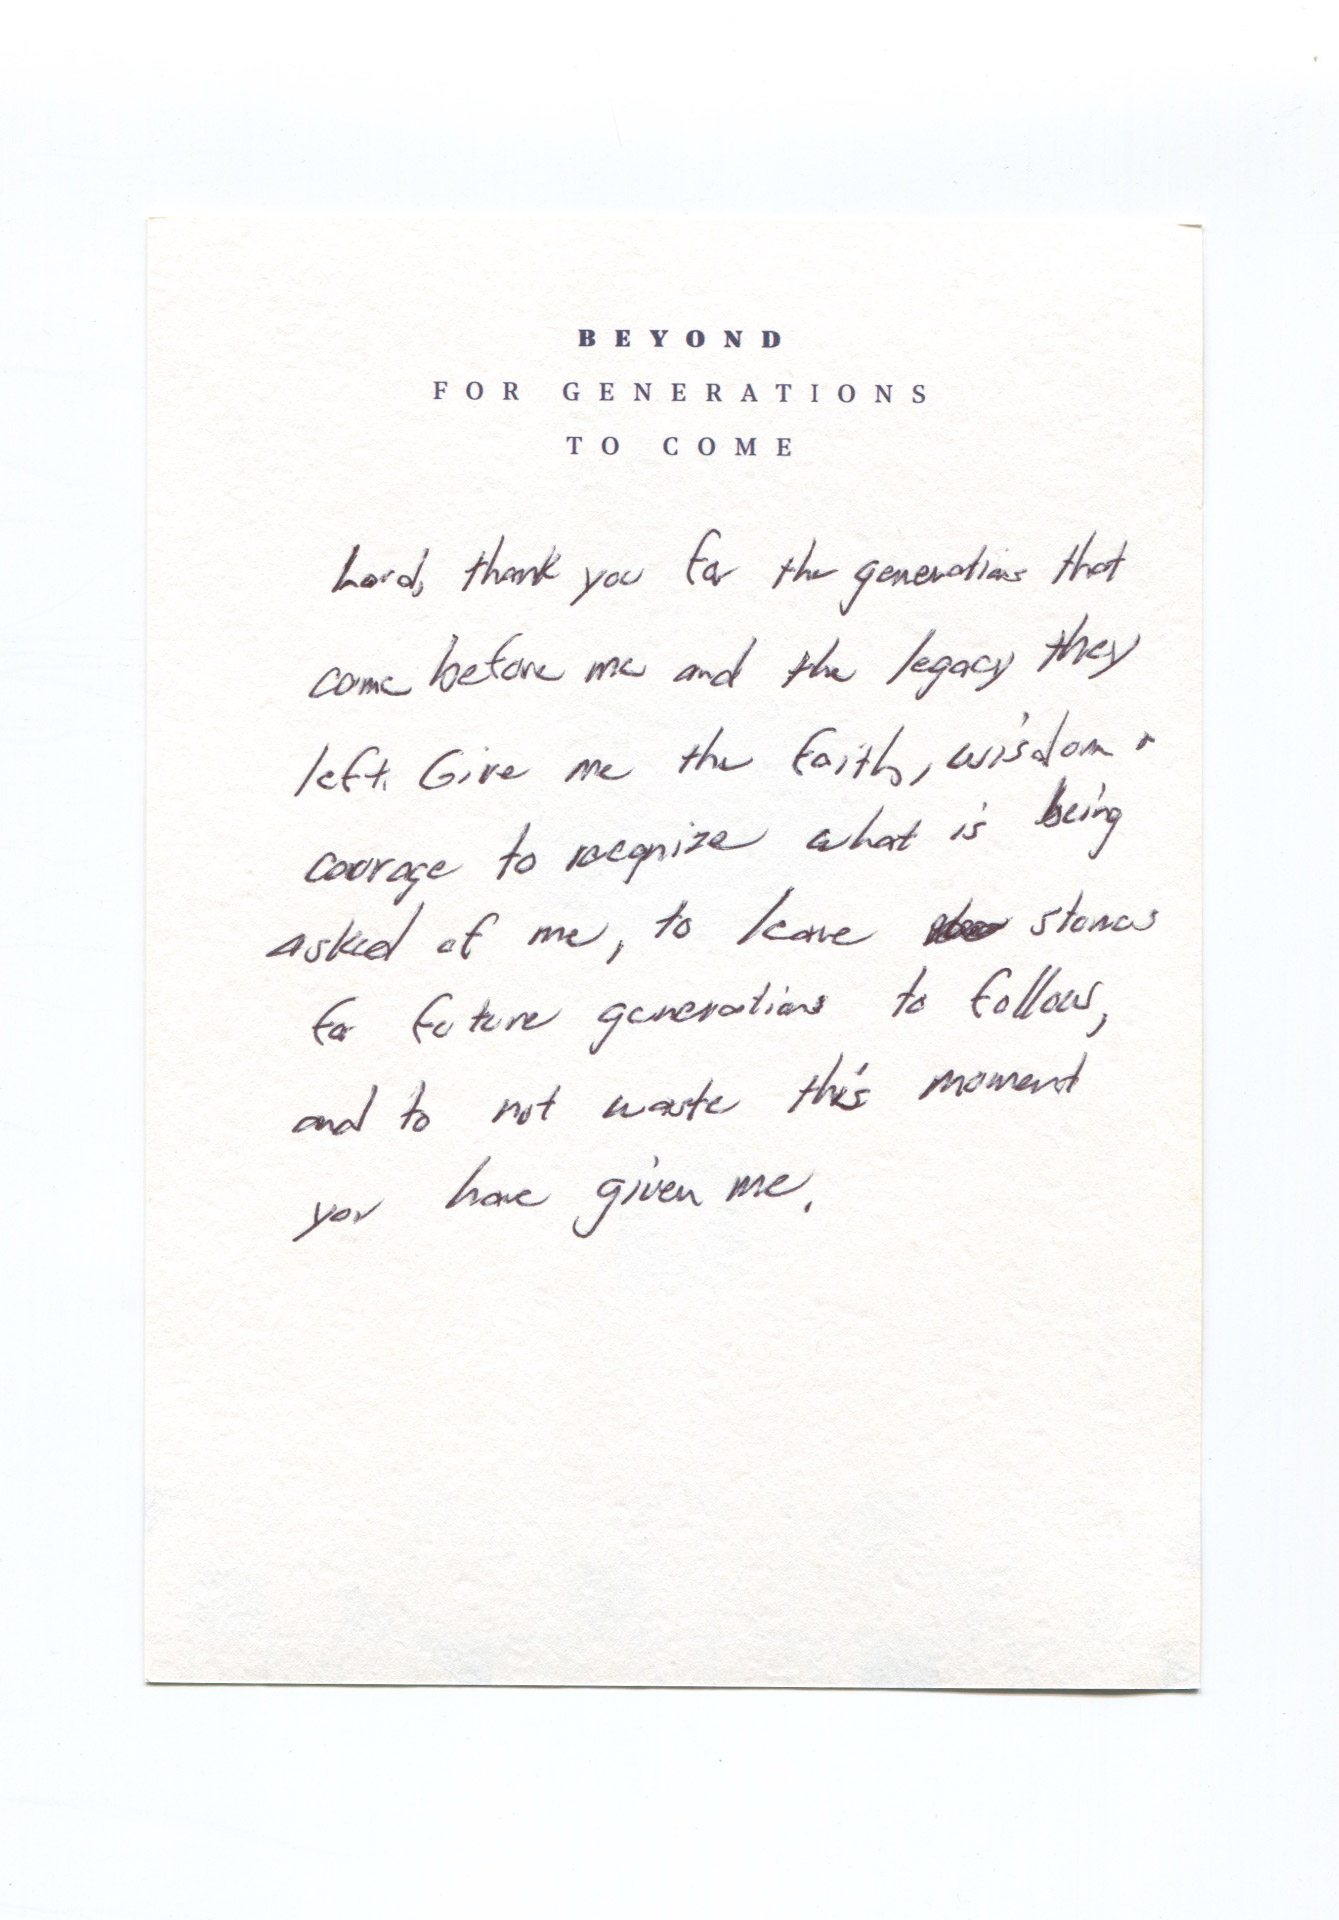 BEYOND
FOR GENERATIONS
TO COME
Lord, thank you for the generations that
come before me and the legacy they
left. Give me the faith, wisdom
courage to recognize what is being
asked of me, to leave stones
for future generations to follow,
and to not waste this moment
you have given me.